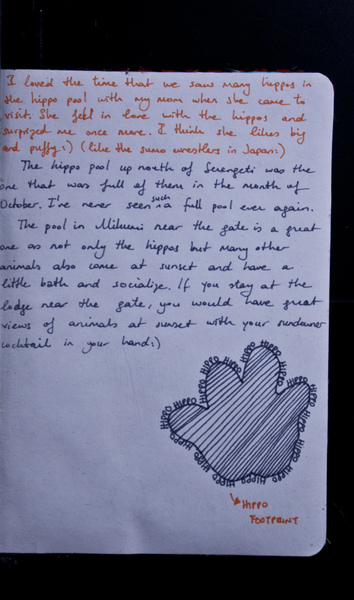 I loved the time that we saw many hippos in
the hippo pool with my mom when she came to
visit. She fell in love with the hippos and
surprized me once more. I think she likes big
and puffy:) (like the sumo wrestlers in Japan:)
The hippo pool up north of Serengeti was the
one that was full of them in the month of
October. I've never seen such a full pool ever again.
The pool in Mikumi near the gate is a great
one as not only the hippos but many other
animals also come at sunset and have a
little bath and socialize. If you stay at the
lodge near the gate, you would have great
views of animals at sunset with your sundowner
cocktail in your hand:)
HIPPO HIPPO HIPPO HIPPO HIPPO HIPPO HIPPO HIPPO HIPPO HIPPO HIPPO HIPPO HIPPO HIPPO HIPPO
HIPPO
FOOTPRINT